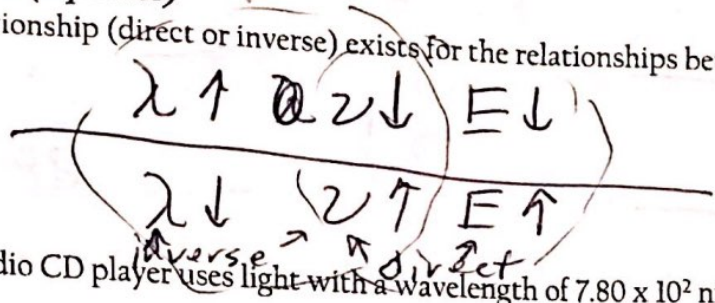 ionship (direct or inverse) exists for the relationships be
λ ↑ ν ↓ E ↓
λ ↓ ν ↑ E ↑
inverse direct
dio CD player uses light with a wavelength of 7.80 x 10² n